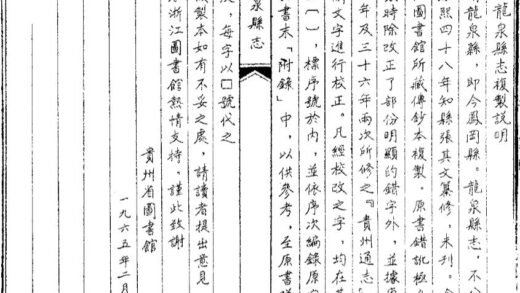 龍泉縣志複製說明
龍泉縣，即今鳳岡縣。龍泉縣志，不
熙四十八年知縣張其文纂修，未刊。
圖書館所藏傳鈔本複製。原書錯訛極
時除改正了部份明顯的錯字外，並據原
年及三十六年兩次所修之『貴州通志
文字進行校正。凡經校改之字，均在其
〔〕，標序號於內，並依序次編錄原
書末「附錄」中，以供參考，至原書
泉縣志
，每字以□號代之
製本如有不妥之處，請讀者提出意見
浙江圖書館熱情支持。謹此致謝
貴州省圖書館
一九六五年二月